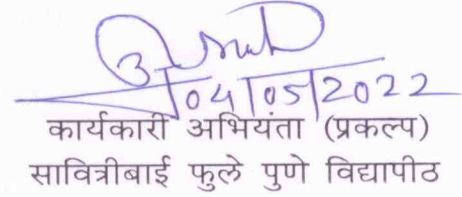 04/05/2022
कार्यकारी अभियंता (प्रकल्प)
सावित्रीबाई फुले पुणे विद्यापीठ